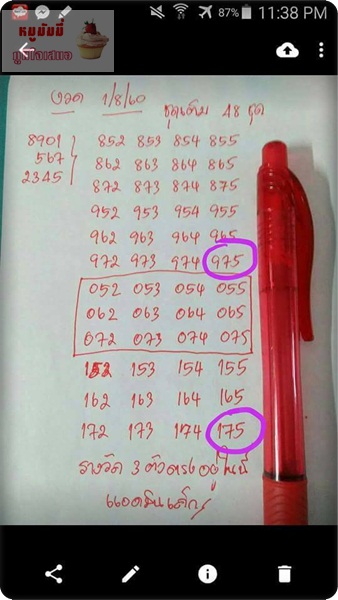 87% 11:38 PM
หมูมัมมี่
งวด 1/8/60 ชุดเต็ม 48 ชุด
8901
567
2345
852 853 854 855
862 863 864 865
872 873 874 875
952 953 954 955
962 963 964 965
972 973 974 975
052 053 054 055
062 063 064 065
072 073 074 075
152 153 154 155
162 163 164 165
172 173 174 175
รางวัล 3 ตัวตรงอยู่ในนี้